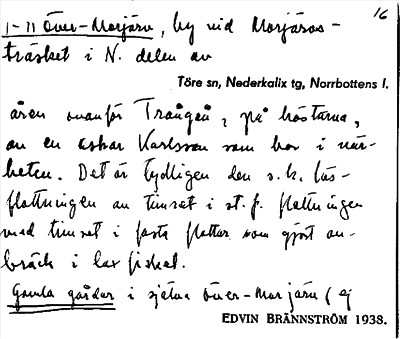 16
1-11 Över-Morjärv, by vid Morjärvs-
träsket i N. delen av
Töre sn, Nederkalix tg, Norrbottens l.
även ovanför Trångån, på höstarna,
av en Oskar Karlsson som bor i när-
heten. Det är tydligen den s.k. lös-
flottningen av timret i st. f. flottningen
med timret i fasta flottar som gjort av-
bräck i laxfisket.
Gamla gårdar i själva Över-Morjärv (ej
EDVIN BRÄNNSTRÖM 1938.